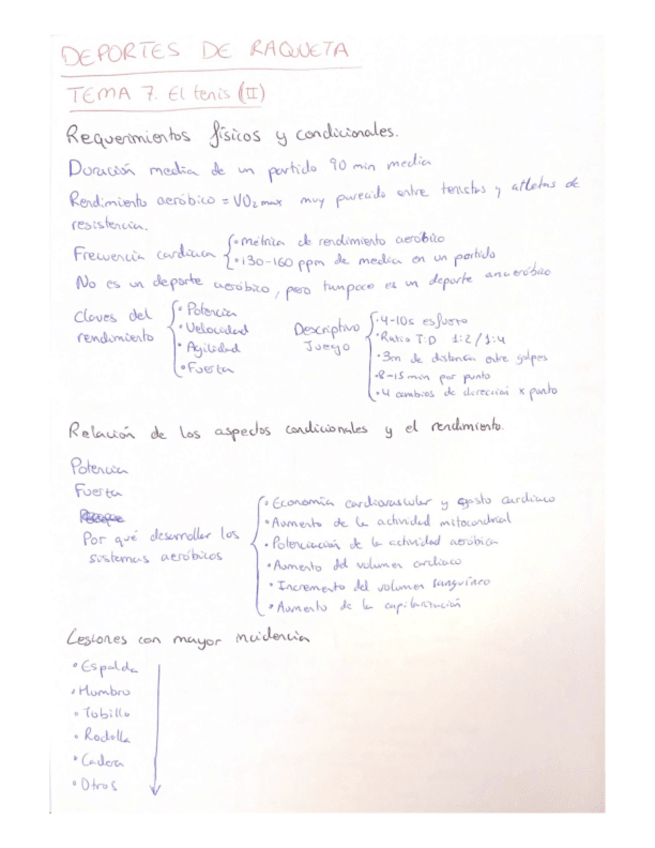 DEPORTES DE RAQUETA
TEMA 7. El tenis (II)
Requerimientos físicos y condicionales.
Duración media de un partido 90 min media
Rendimiento aeróbico = VO2 max muy parecido entre tenistas y atletas de
resistencia.
Frecuencia cardiaca
• métrica de rendimiento aeróbico
• 130-160 ppm de media en un partido
No es un deporte aeróbico, pero tampoco es un deporte anaeróbico
Claves del
rendimiento
• Potencia
• Velocidad
• Agilidad
• Fuerza
Descriptivo
Juego
• 4-10s esfuerzo
• Ratio T:D 1:2/1:4
• 3m de distancia entre golpes
• 8-15 m por punto
• 4 cambios de dirección x punto
Relación de los aspectos condicionales y el rendimiento.
Potencia
Fuerza
Por qué desarrollar los
sistemas aeróbicos
• Economía cardiovascular y gasto cardiaco
• Aumento de la actividad mitocondrial
• Potenciación de la actividad aeróbica
• Aumento del volumen cardiaco
• Incremento del volumen sanguíneo
• Aumento de la capilarización
Lesiones con mayor incidencia
• Espalda
• Hombro
• Tobillo
• Rodilla
• Cadera
• Otros